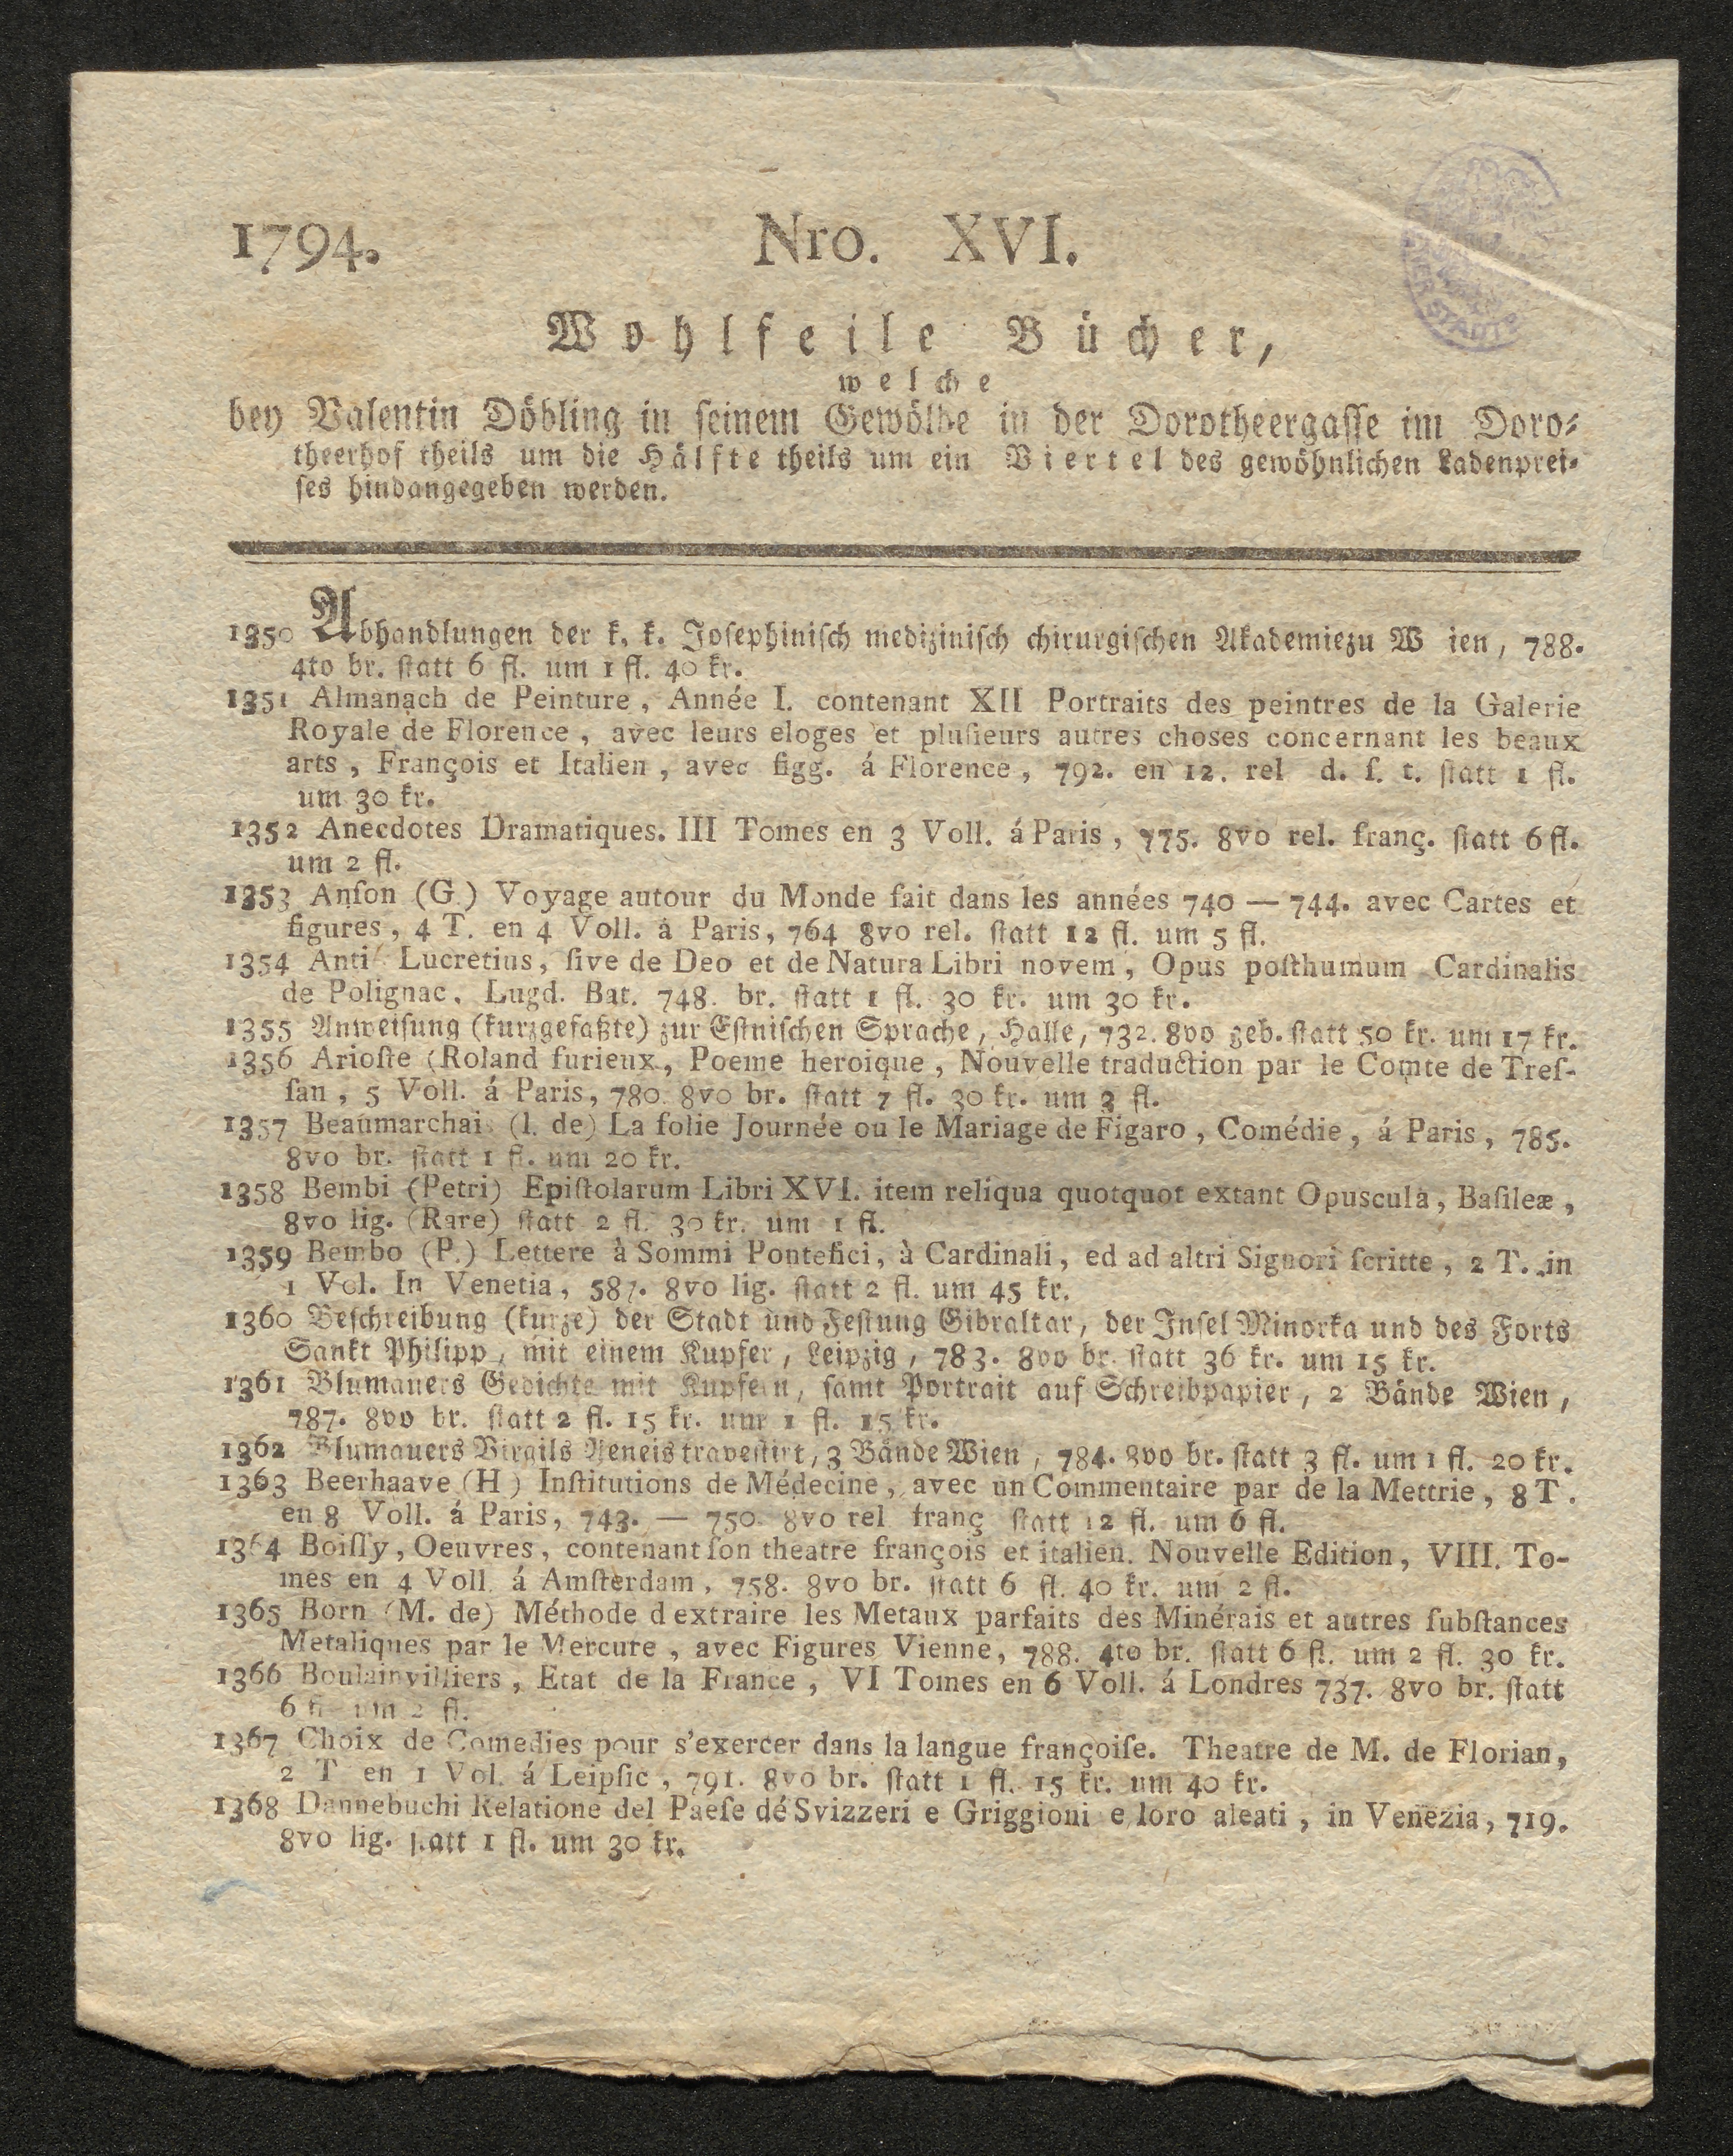 1794.
Nro. XVI.
Wohlfeile Bücher,
welche
bey Valentin Döbling in ſeinem Gewölbe in der Dorotheergaſſe im Doro-
theerhof theils um die Hälfte theils um ein Viertel des gewöhnlichen Ladenprei-
ſes hindangegeben werden.
1350 Abhandlungen der k. k. Joſephiniſch mediziniſch chirurgiſchen Akademiezu W ien, 788.
4to br. ſtatt 6 fl. um 1 fl. 40 kr.
1351 Almanach de Peinture, Année I. contenant XII Portraits des peintres de la Galerie
Royale de Florence, avec leurs eloges et pluſieurs autres choses concernant les beaux
arts, François et Italien, avec figg. á Florence, 792. en 12. rel d. ſ. t. ſtatt 1 fl.
um 30 kr.
1352 Anecdotes Dramatiques. III Tomes en 3 Voll. á Paris, 775. 8vo rel. franç. ſtatt 6 fl.
um 2 fl.
1353 Anſon (G.) Voyage autour du Monde fait dans les années 740 — 744. avec Cartes et
figures, 4 T. en 4 Voll. á Paris, 764 8vo rel. ſtatt 12 fl. um 5 fl.
1354 Anti Lucretius, ſive de Deo et de Natura Libri novem, Opus poſthumum Cardinalis
de Polignac, Lugd. Bat. 748. br. ſtatt 1 fl. 30 kr. um 30 kr.
1355 Anweiſung (kurzgefaßte) zur Eſtniſchen Sprache, Halle, 732. 8vo geb. ſtatt 50 kr. um 17 kr.
1356 Arioſte (Roland furieux, Poeme heroique, Nouvelle traduction par le Comte de Treſ-
ſan, 5 Voll. á Paris, 780. 8vo br. ſtatt 7 fl. 30 kr. um 3 fl.
1357 Beaumarchais (l. de) La folie Journée ou le Mariage de Figaro, Comédie, á Paris, 785.
8vo br. ſtatt 1 fl. um 20 kr.
1358 Bembi (Petri) Epiſtolarum Libri XVI. item reliqua quotquot extant Opuscula, Baſileæ,
8vo lig. (Rare) ſtatt 2 fl. 30 kr. um 1 fl.
1359 Bembo (P.) Lettere à Sommi Pontefici, à Cardinali, ed ad altri Signori ſcritte, 2 T. in
1 Vol. In Venetia, 587. 8vo lig. ſtatt 2 fl. um 45 kr.
1360 Beſchreibung (kurze) der Stadt und Feſtung Gibraltar, der Inſel Minorka und des Forts
Sankt Philipp, mit einem Kupfer, Leipzig, 783. 8vo br. ſtatt 36 kr. um 15 kr.
1361 Blumauers Gedichte mit Kupfern, ſamt Portrait auf Schreibpapier, 2 Bände Wien,
787. 8vo br. ſtatt 2 fl. 15 kr. um 1 fl. 15 kr.
1362 Blumauers Virgils Aeneis traveſtirt, 3 Bände Wien, 784. 8vo br. ſtatt 3 fl. um 1 fl. 20 kr.
1363 Beerhaave (H) Inſtitutions de Médecine, avec un Commentaire par de la Mettrie, 8 T.
en 8 Voll. á Paris, 743. — 750. 8vo rel franç ſtatt 12 fl. um 6 fl.
1364 Boiſſy, Oeuvres, contenant ſon theatre françois et italien. Nouvelle Edition, VIII. To-
mes en 4 Voll. á Amſterdam, 758. 8vo br. ſtatt 6 fl. 40 kr. um 2 fl.
1365 Born (M. de) Méthode d extraire les Metaux parfaits des Minérais et autres ſubſtances
Metaliques par le Mercure, avec Figures Vienne, 788. 4to br. ſtatt 6 fl. um 2 fl. 30 kr.
1366 Boulainvilliers, Etat de la France, VI Tomes en 6 Voll. á Londres 737. 8vo br. ſtatt
6 fl um 2 fl.
1367 Choix de Comedies pour s'exercer dans la langue françoiſe. Theatre de M. de Florian,
2 T en 1 Vol. á Leipſic, 791. 8vo br. ſtatt 1 fl. 15 kr. um 40 kr.
1368 Dannebuchi Relatione del Paeſe dé Svizzeri e Griggioni e loro aleati, in Venezia, 719.
8vo lig. ſtatt 1 fl. um 30 kr.